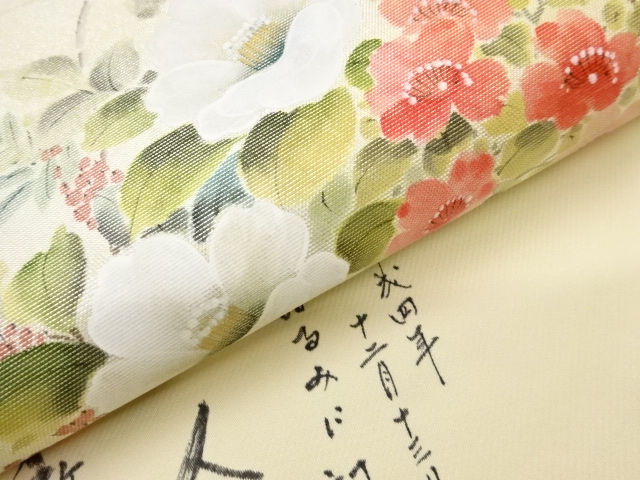 成四年
十二月十三
るみに
人